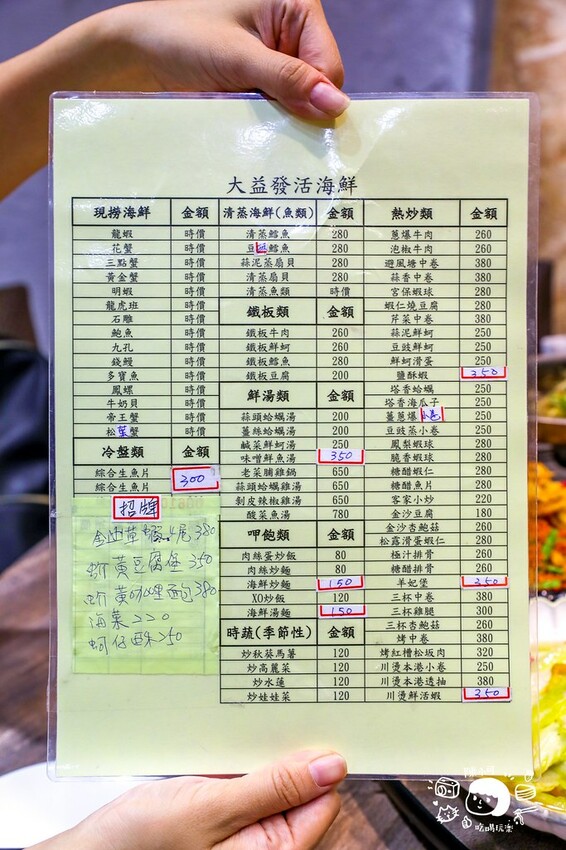 大益發活海鮮
現撈海鮮 金額
龍蝦 時價
花蟹 時價
三點蟹 時價
黃金蟹 時價
明蝦 時價
龍虎班 時價
石雕 時價
鮑魚 時價
九孔 時價
錢鰻 時價
多寶魚 時價
鳳螺 時價
牛奶貝 時價
帝王蟹 時價
松葉蟹 時價
冷盤類 金額
綜合生魚片 300
綜合生魚片
招牌
380
蚵黃豆腐堡 350
380
海菜 220
蚵仔酥 250
清蒸海鮮(魚類) 金額
清蒸鱈魚 280
豆豉鱈魚 280
蒜泥蒸扇貝 280
清蒸扇貝 280
清蒸魚類 時價
鐵板類 金額
鐵板牛肉 260
鐵板鮮蚵 260
鐵板鱈魚 280
鐵板豆腐 200
鮮湯類 金額
蒜頭蛤蠣湯 200
薑絲蛤蠣湯 200
鹹菜鮮蚵湯 250
味噌鮮魚湯 350
老菜脯雞鍋 650
蒜頭蛤蠣雞湯 650
剝皮辣椒雞湯 650
酸菜魚湯 780
呷飽類 金額
肉絲蛋炒飯 80
肉絲炒麵 80
海鮮炒麵 150
XO炒飯 120
海鮮湯麵 150
時蔬(季節性) 金額
炒秋葵馬薯 120
炒高麗菜 120
炒水蓮 120
炒娃娃菜 120
熱炒類 金額
蔥爆牛肉 260
泡椒牛肉 260
避風塘中卷 380
蒜香中卷 380
宮保蝦球 280
蝦仁燒豆腐 280
芹菜中卷 380
蒜泥鮮蚵 250
豆豉鮮蚵 250
鮮蚵滑蛋 250
鹽酥蝦 350
塔香蛤蠣 250
塔香海瓜子 250
薑蔥爆小卷 250
豆豉蒸小卷 250
鳳梨蝦球 280
脆香蝦球 280
糖醋蝦仁 280
糖醋魚片 280
客家小炒 220
金沙豆腐 180
金沙杏鮑菇 260
松露滑蛋蝦仁 280
極汁排骨 260
糖醋排骨 260
羊妃堡 350
三杯中卷 380
三杯雞腿 300
三杯杏鮑菇 260
烤中卷 380
烤紅糟松坂肉 320
川燙本港小卷 250
川燙本港透抽 380
川燙鮮活蝦 350
吃喝玩樂